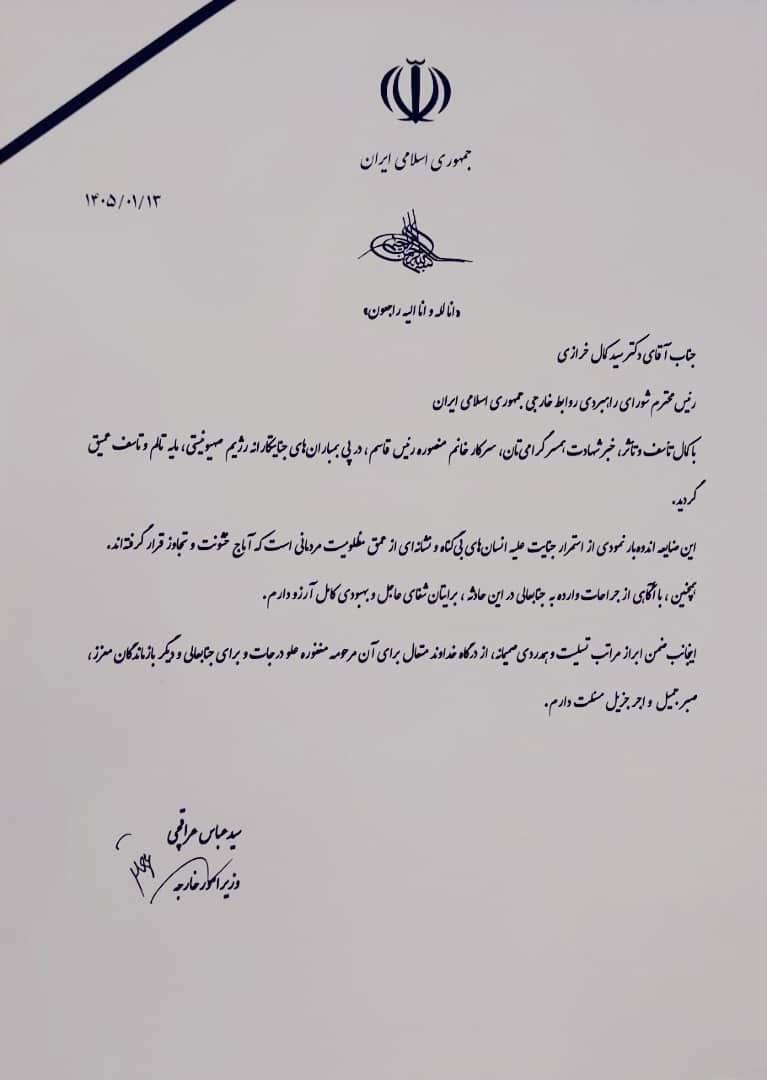 جمهوری اسلامی ایران
۱۴۰۵/۰۱/۱۳
«انا لله و انا الیه راجعون»
جناب آقای دکتر سید کمال خرازی
رئیس محترم شورای راهبردی روابط خارجی جمهوری اسلامی ایران
با کمال تأسف و تأثر، خبر شهادت همسر گرامی‌تان، سرکار خانم منصوره رئیس قاسم، در پی بمباران‌های جنایتکارانه رژیم صهیونیستی، مایه تالم و تاسف عمیق
گردید.
این ضایعه اندوه‌بار نمودی از استمرار جنایت علیه انسان‌های بی‌گناه و نشانه‌ای از عمق مظلومیت مردمانی است که آماج خشونت و تجاوز قرار گرفته‌اند.
همچنین، با آگاهی از جراحات وارده به جنابعالی در این حادثه، برایتان شفای عاجل و بهبودی کامل آرزو دارم.
اینجانب ضمن ابراز مراتب تسلیت و همدردی صمیمانه، از درگاه خداوند متعال برای آن مرحومه مغفوره علو درجات و برای جنابعالی و دیگر بازماندگان معزز،
صبر جمیل و اجر جزیل مسئلت دارم.
سید عباس عراقچی
وزیر امور خارجه